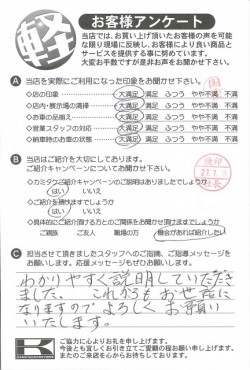 軽
お客様アンケート
当店では、お買い上げ頂いたお客様の声を可能
な限り現場に反映し、お客様により良い商品と
サービスを提供する事に努めています。
大変お手数ですが是非お声をお聞かせ下さい。
A 当店を実際にご利用になった印象をお聞かせ下さい。
◇店の印象 大満足 満足 ふつう やや不満 不満
◇店内・展示場の清掃 大満足 満足 ふつう やや不満 不満
◇お車の品揃え 大満足 満足 ふつう やや不満 不満
◇営業スタッフの対応 大満足 満足 ふつう やや不満 不満
◇納車時のお車の状態 大満足 満足 ふつう やや不満 不満
B 当店はご紹介を大切にしております。
ご紹介キャンペーンについてお聞かせ下さい。
◇カミタケご紹介キャンペーンのご説明はありましたでしょうか
はい いいえ
◇ご紹介を頂けますでしょうか
はい いいえ
◇具体的にご紹介頂ける方とのご関係をお聞かせ頂けますでしょうか
ご親族 ご友人 職場の方 機会があれば紹介したい
C 担当させて頂きましたスタッフへのご指摘、ご指導メッセージを
お願いします。応援メッセージもぜひお願いします。
わかりやすく説明していただき
ました。これからもお世話に
なりますのでよろしくお願い
いたします。
K
ご協力に心よりお礼を申し上げます。
今後とも宜しくお引き立てご愛顧の程お願い申し上げます。
またのご来店を心からお待ちしております。